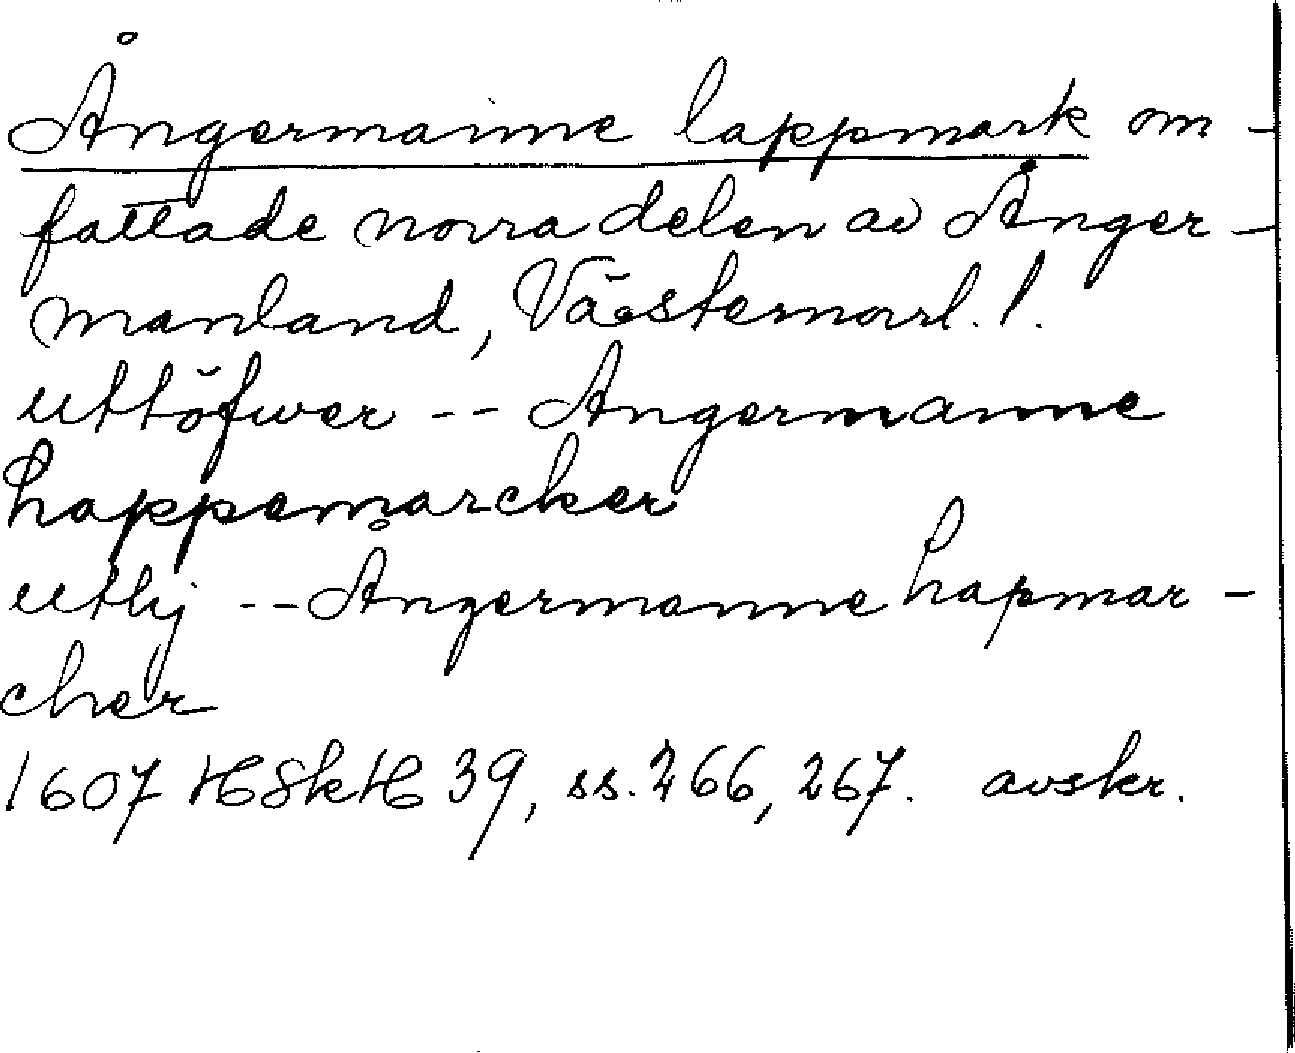 Ångermanne lappmark om-
fattade norra delen av Ånger-
manland, Västernorrl. l.
uttöfwer -- Angermanne
Lappemarcker
uthij -- Ångermanne Lapmar-
cher
1607 HSkH 39, ss. 266, 267. avskr.